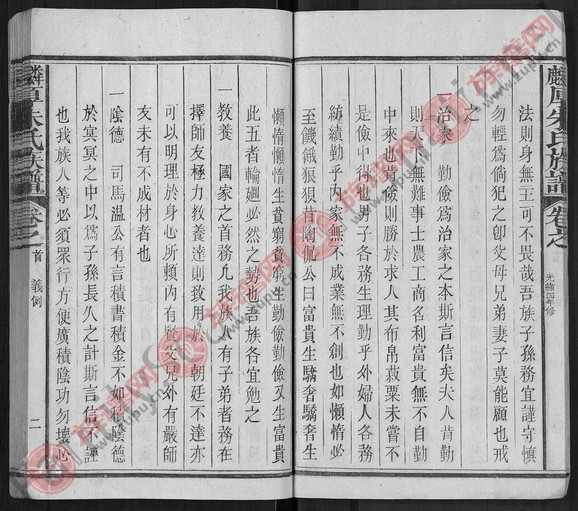 麟厚朱氏族譜
卷之
光緒四年修
法則身無王可不畏哉吾族子孫務宜謹守慎
勿輕爲倘犯之卽父母兄弟妻子莫能顧也戒
之
一治家 勤儉爲治家之本斯言信矣夫人肯勤
則天下無難事士農工商名利富貴無不自勤
中來也肯儉則勝於求人其布帛菽粟未嘗不
是儉中得男子各務生理勤乎外婦人各務
績勤乎內家無不成業無不創也如懶惰必
至饑餓狠狽昔陶侃公曰富貴生驕奢驕奢生
懶惰懶惰生貧窮貧窮生勤儉勤儉又生富貴
此五者輪廻必然之勢也吾族各宜勉之
一教養 國家之首務凡我族人有子弟者務在
擇師友極力教養達則致治於 朝廷不達亦
可以明理於身心所賴內有賢父兄外有嚴師
友未有不成材者也
一陰德 司馬溫公有言積書積金不如積陰德
於冥冥之中以爲子孫長久之計斯言信不誣
也我族人等必須眾行方便廣積陰功勿壞心
麟厚朱氏族譜
卷之
首
義例
二
族譜网
zupu.cn